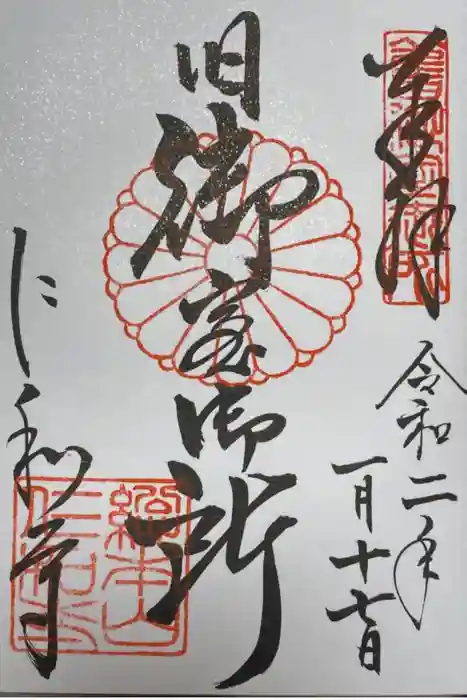 奉拝
令和二年
一月十七日
旧御室御所
仁和寺
總本山
仁和寺